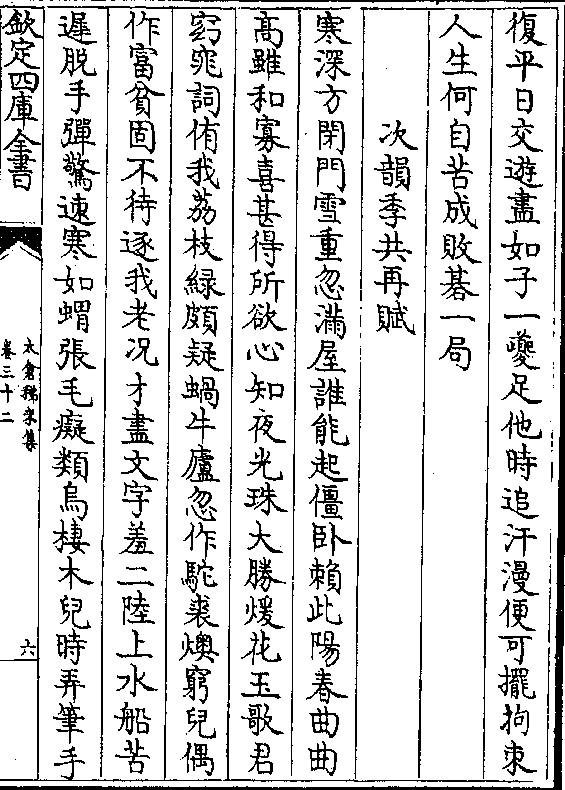 復平日交遊盡如子一夔足他時追汗漫便可擺拘束
人生何自苦成敗碁一局
次韻季共再賦
寒深方閉門雪重忽滿屋誰能起僵卧賴此陽春曲曲
髙雖和寡喜甚得所欲心知夜光珠大勝煖花玉歌君
窈窕詞侑我荔枝緑頗疑蝸牛廬忽作駝裘燠窮兒偶
作富貧固不待逐我老况才盡文字羞二陸上水船苦
遲脱手彈驚速寒如蝟張毛癡類烏棲木兒時弄筆手
欽定四庫全書
太倉稊米集
卷三十二
六